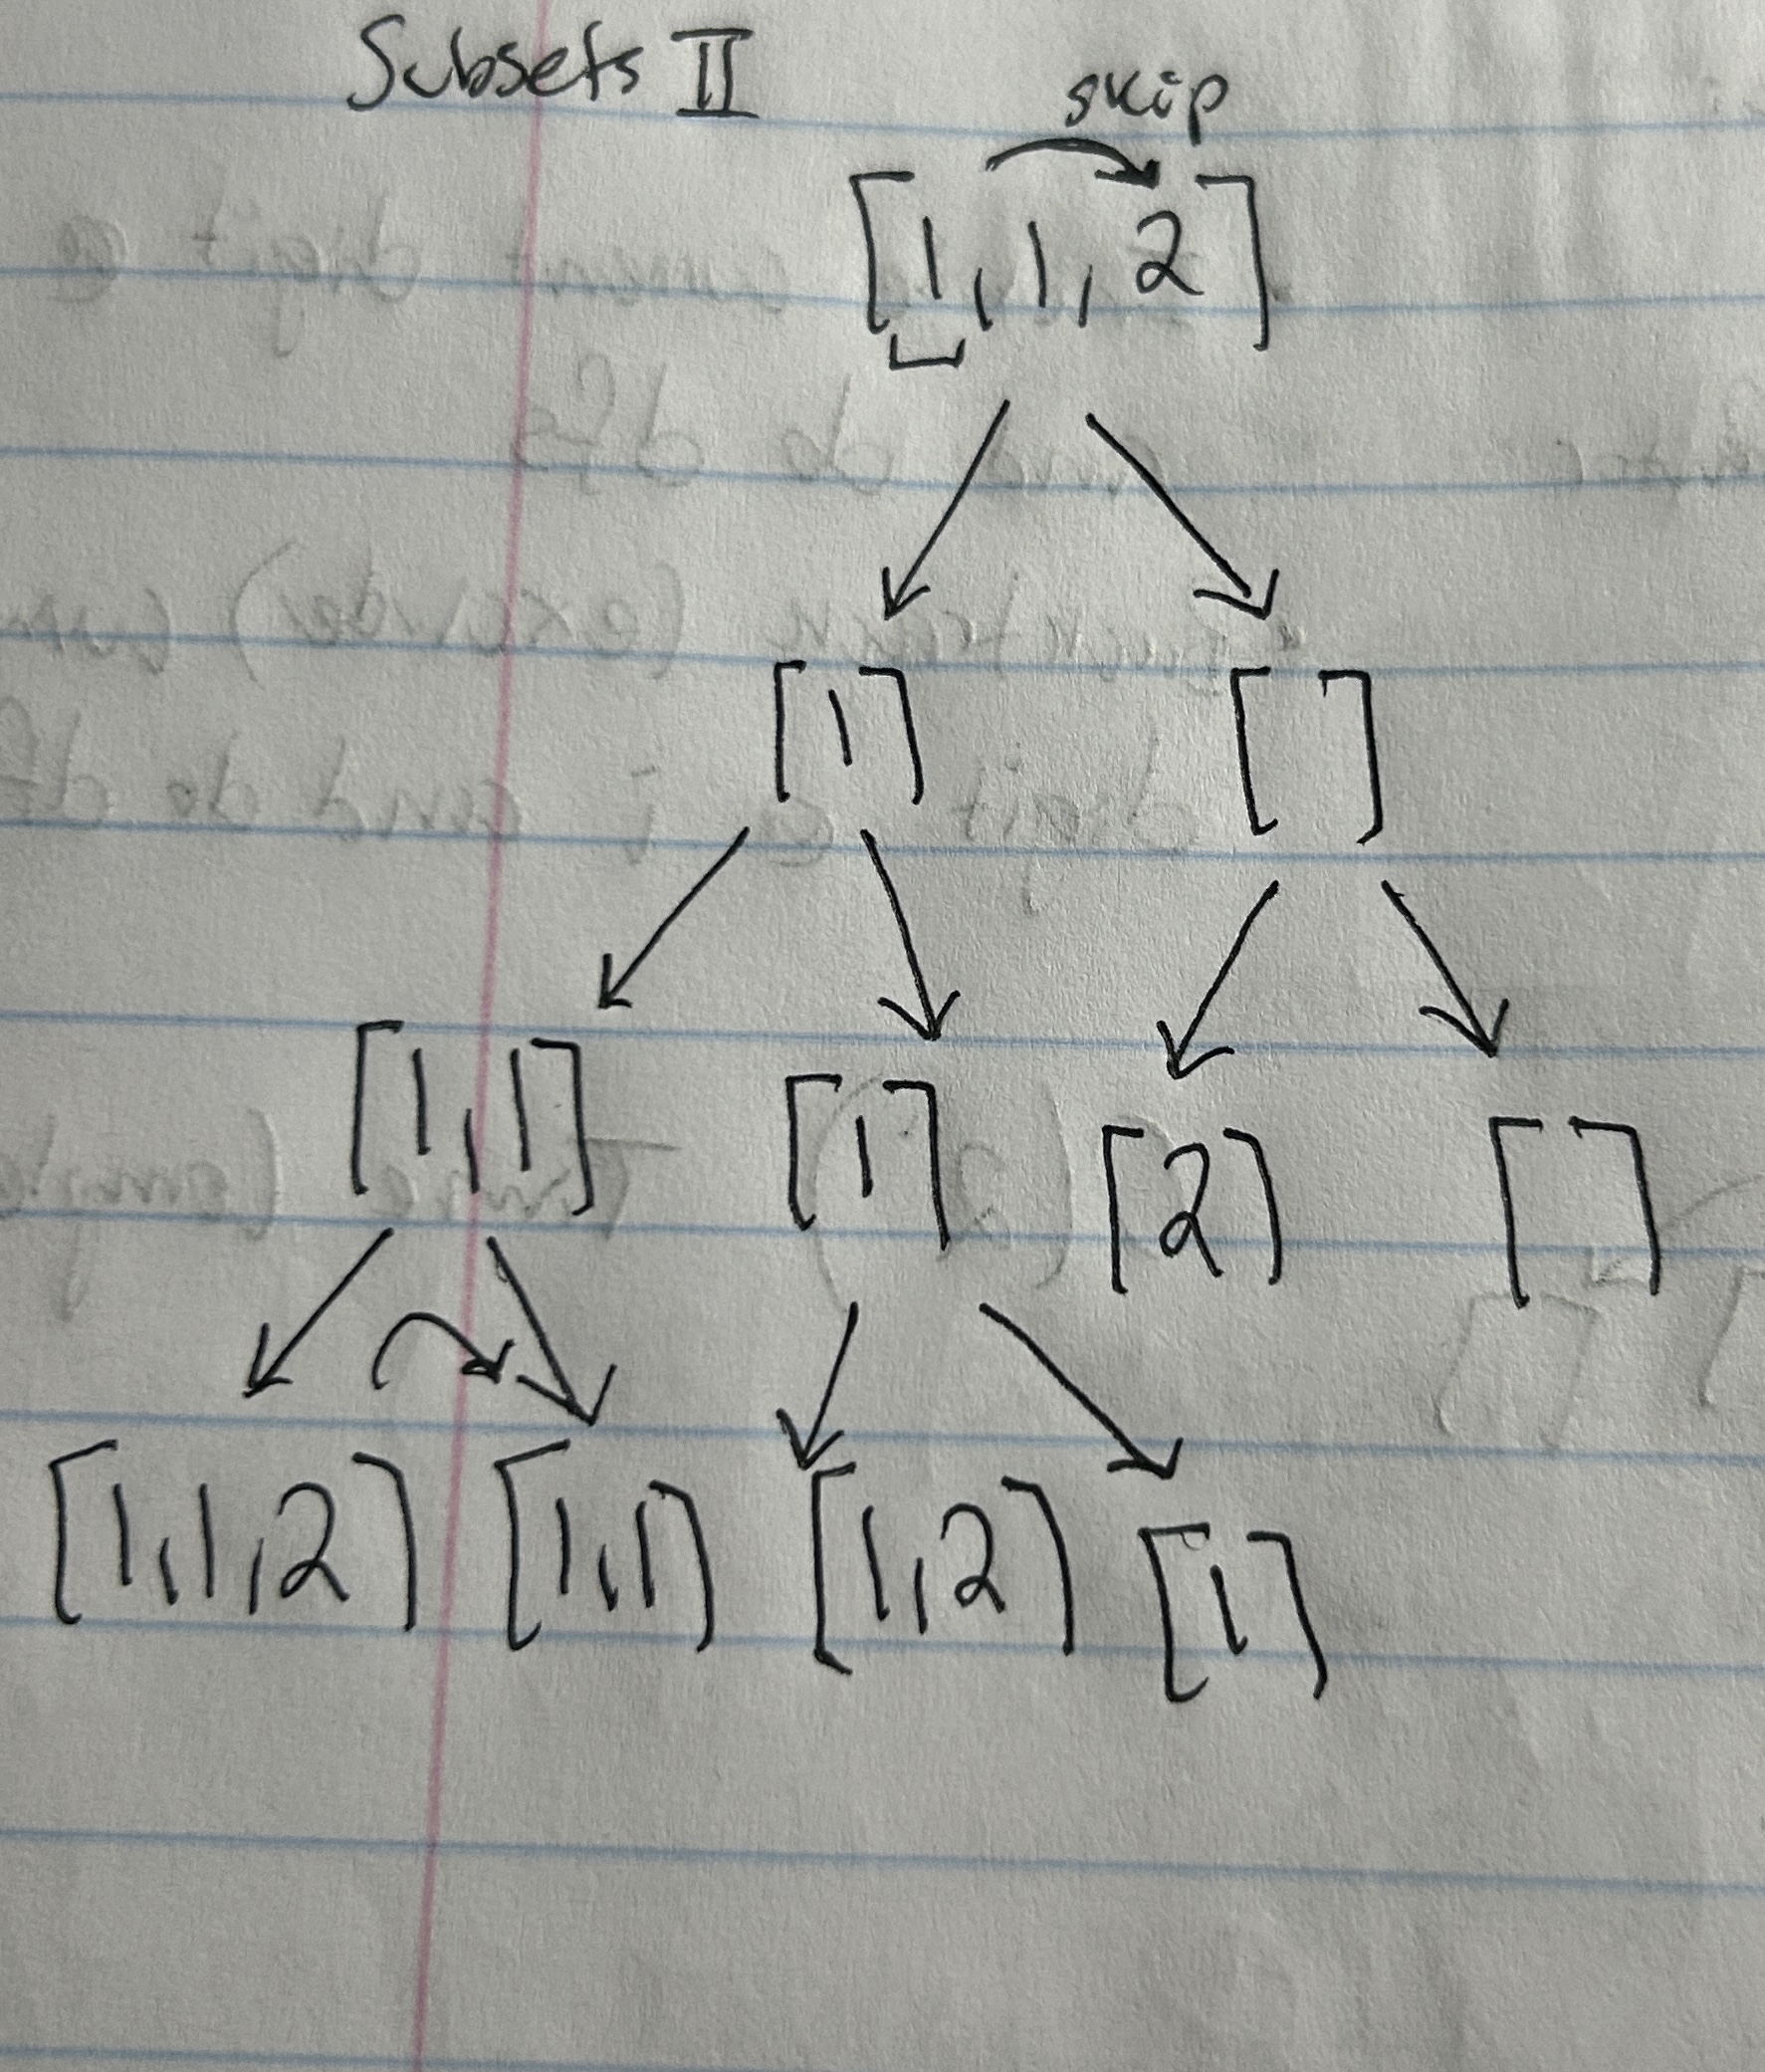 Subsets II
skip
[1,1,2]
[1] []
[1,1] [1] [2] []
[1,1,2] [1,1] [1,2] [1]